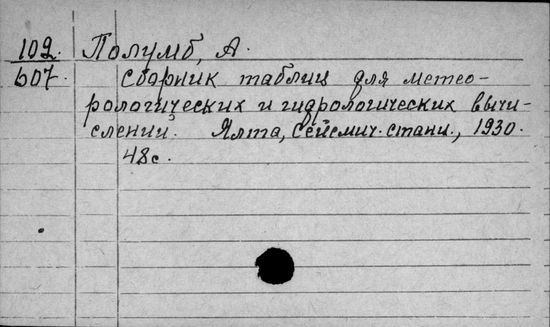 102. Полумб, А.
607. Сборник таблиц для метео-
рологических и гидрологических вычи-
слений. Ялта, Сейсмич. станц., 1930.
48с.